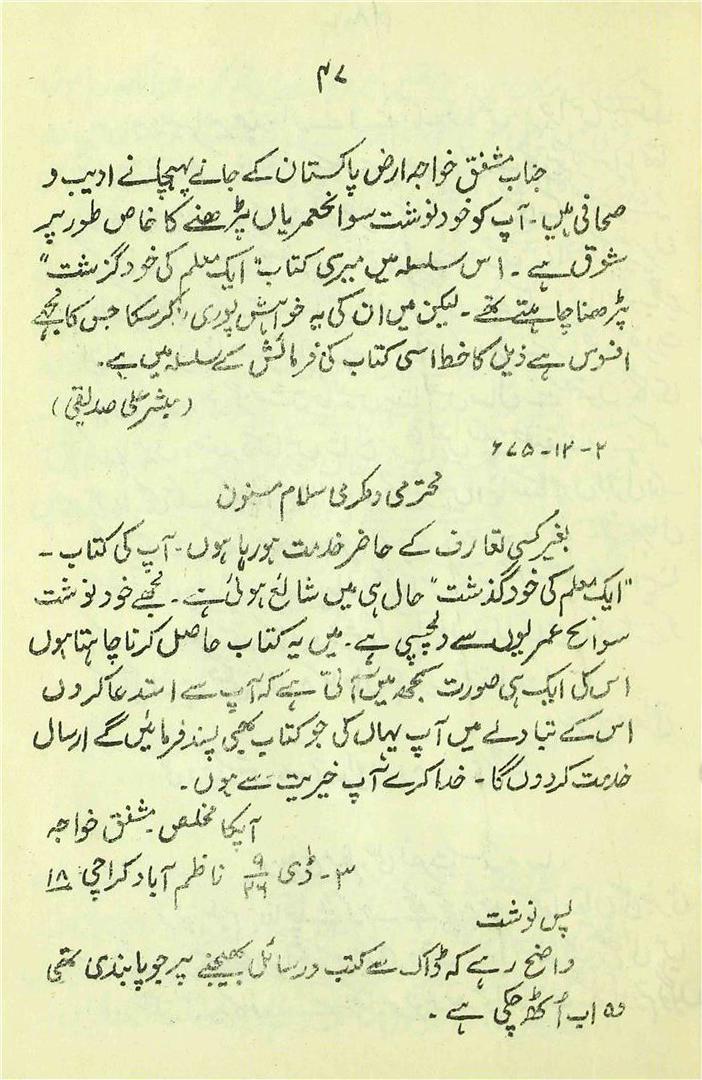 ۴۷
جناب مشفق خواجہ ارض پاکستان کے جانے پہچانے ادیب و
صحافی ہیں۔ آپ کو خود نوشت سوانحعمریاں پڑھنے کا خاص طور پر
شوق ہے۔ اس سلسلہ میں میری کتاب "ایک معلم کی خود گزشت"
پڑھنا چاہتے تھے۔ لیکن میں ان کی یہ خواہش پوری نہ کر سکا جس کا مجھے
افسوس ہے ذیل کا خط اسی کتاب کی فرمائش کے سلسلہ میں ہے۔
(مبشر علی صدیقی)
۲-۱۲-۷۵ء
محترمی و مکرمی سلام مسنون
بغیر کسی تعارف کے حاضر خدمت ہو رہا ہوں۔ آپ کی کتاب -
"ایک معلم کی خود گذشت" حال ہی میں شائع ہوئی ہے۔ مجھے خود نوشت
سوانح عمریوں سے دلچسپی ہے۔ میں یہ کتاب حاصل کرنا چاہتا ہوں
اس کی ایک ہی صورت سمجھ میں آتی ہے کہ آپ سے استدعا کروں
اس کے تبادلے میں آپ یہاں کی جو کتاب بھی پسند فرمائیں گے ارسال
خدمت کر دوں گا۔ خدا کرے آپ خیریت سے ہوں۔
آپکا مخلص۔ مشفق خواجہ
۳۔ ڈی ۹/۲۶ ناظم آباد کراچی ۱۸
پس نوشت
واضح رہے کہ ڈاک سے کتب و رسائل بھیجنے پر جو پابندی تھی
وہ اب اُٹھ چکی ہے۔